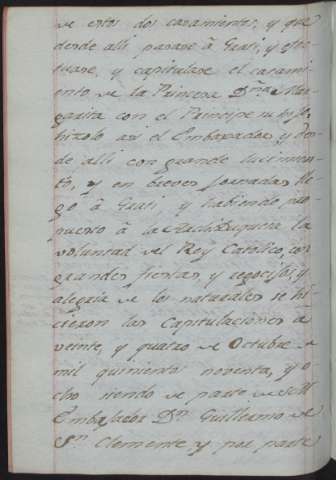 de estos dos casamientos, y que
desde alli pasase â Grasi, y efec
tuase, y capitulase el casami
ento de la Princesa D.ña Mar
garita con el Principe su hijo,
hizolo asi el Embaxador, y des
de alli con grande lucimien
to, y en breves jornadas lle
gó â Grasi, y habiendo pro
puesto â la Archiduquesa la
voluntad del Rey Catolico, con
grandes fiestas, y regocijos, y
alegria de los naturales se hi
cieron las Capitulaciones a
veinte, y quatro de Octubre de
mil quinientos noventa, y o
cho siendo de parte de
Embaxador D.n Guillermo de
S.n Clemente y por parte